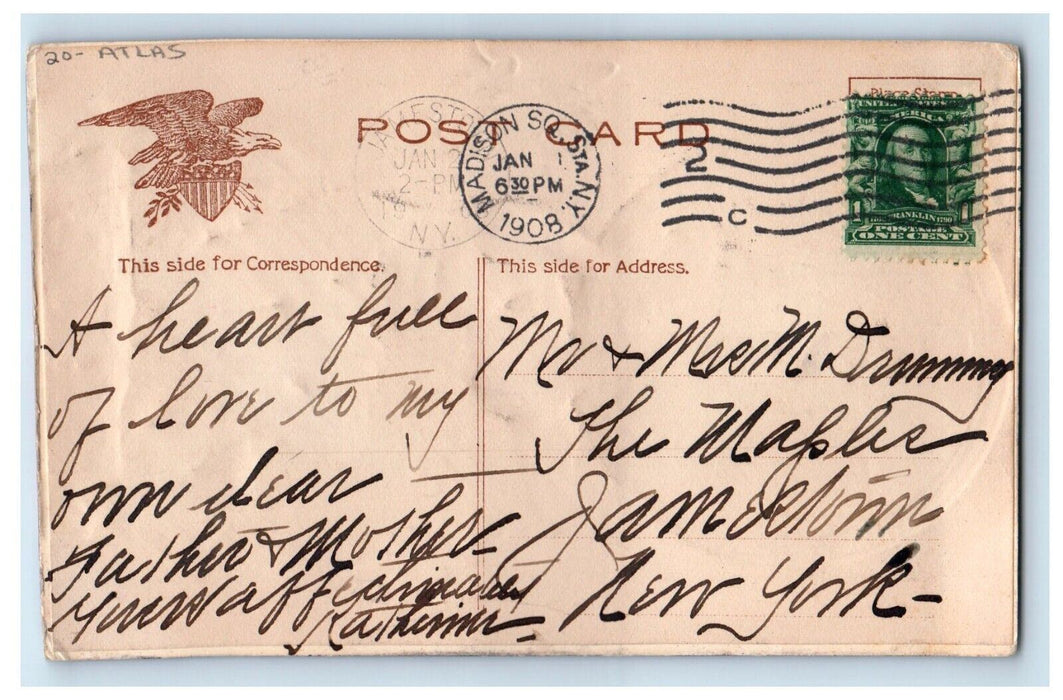 20- ATLAS
POST CARD
JAN 2
2-PM
N.Y.
MADISON SQ. STA. N.Y.
JAN 1
6 30 PM
1908
2
C
Place Stamp
UNITED STATES OF AMERICA
1 FRANKLIN 1790 1
POSTAGE
ONE CENT
This side for Correspondence.
A heart full
of love to my
own dear
Father & Mother
Yours affectionately
This side for Address.
Mr & Mrs M.
The Maples
Jamestown
New York-